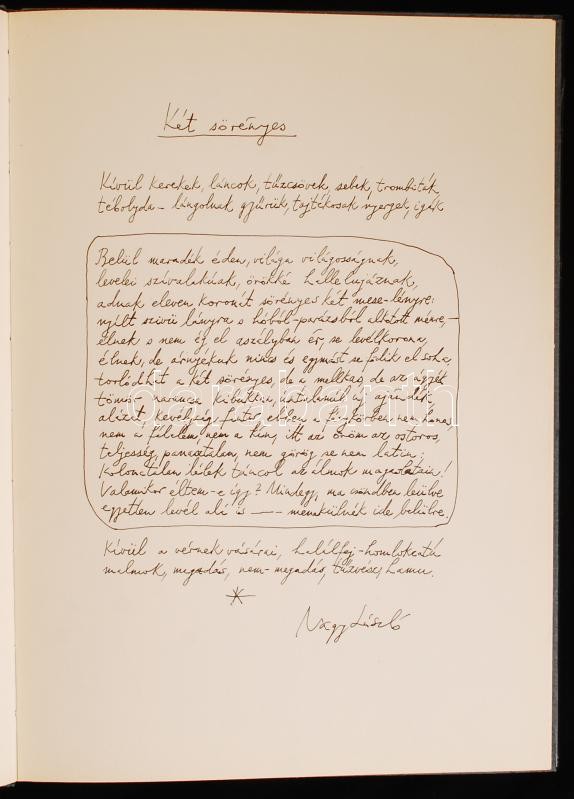 Két sörényes
Kívül kerekek, láncok, tűzcsövek, sebek, trombiták
tébolyda – lángolnak gyűrűk, tajtékosak nyergek, igák
Belül maradék éden, világa világosságnak,
levelei szívalakúak, örökké hallelujáznak,
adnak eleven koronát sörényes két mese-lényre:
nyílt szívű lányra s hóból-parázsból alkotott ménre, –
élnek s nem ej, el aszályban ér, se levélkorona,
élnek, de árnyékuk nincs és egymást se falik el soha,
torlódhat a két sörényes, de a mellkas, de az ágyék
tömör narancsa kibuttan, untalanul új ajándék
alázat, kevélység, fintor ebben a fénykörben nem hamar,
nem a félelem, nem a kín, itt az öröm az ostoros,
teljesség, panasztalan, nem görög se nem latin:
Kolonctalan lélek táncol az álmok magaslatain!
Valamikor éltem-e így? Mindegy, ma rendben leülve
egyetlen levél alá is — menekülnék ide belülre.
Kívül a vérnek vásárai, halálfej-homlokzatú
malmok, megadás, nem-megadás, tűzvész, hamu.
Nagy László
darabanth